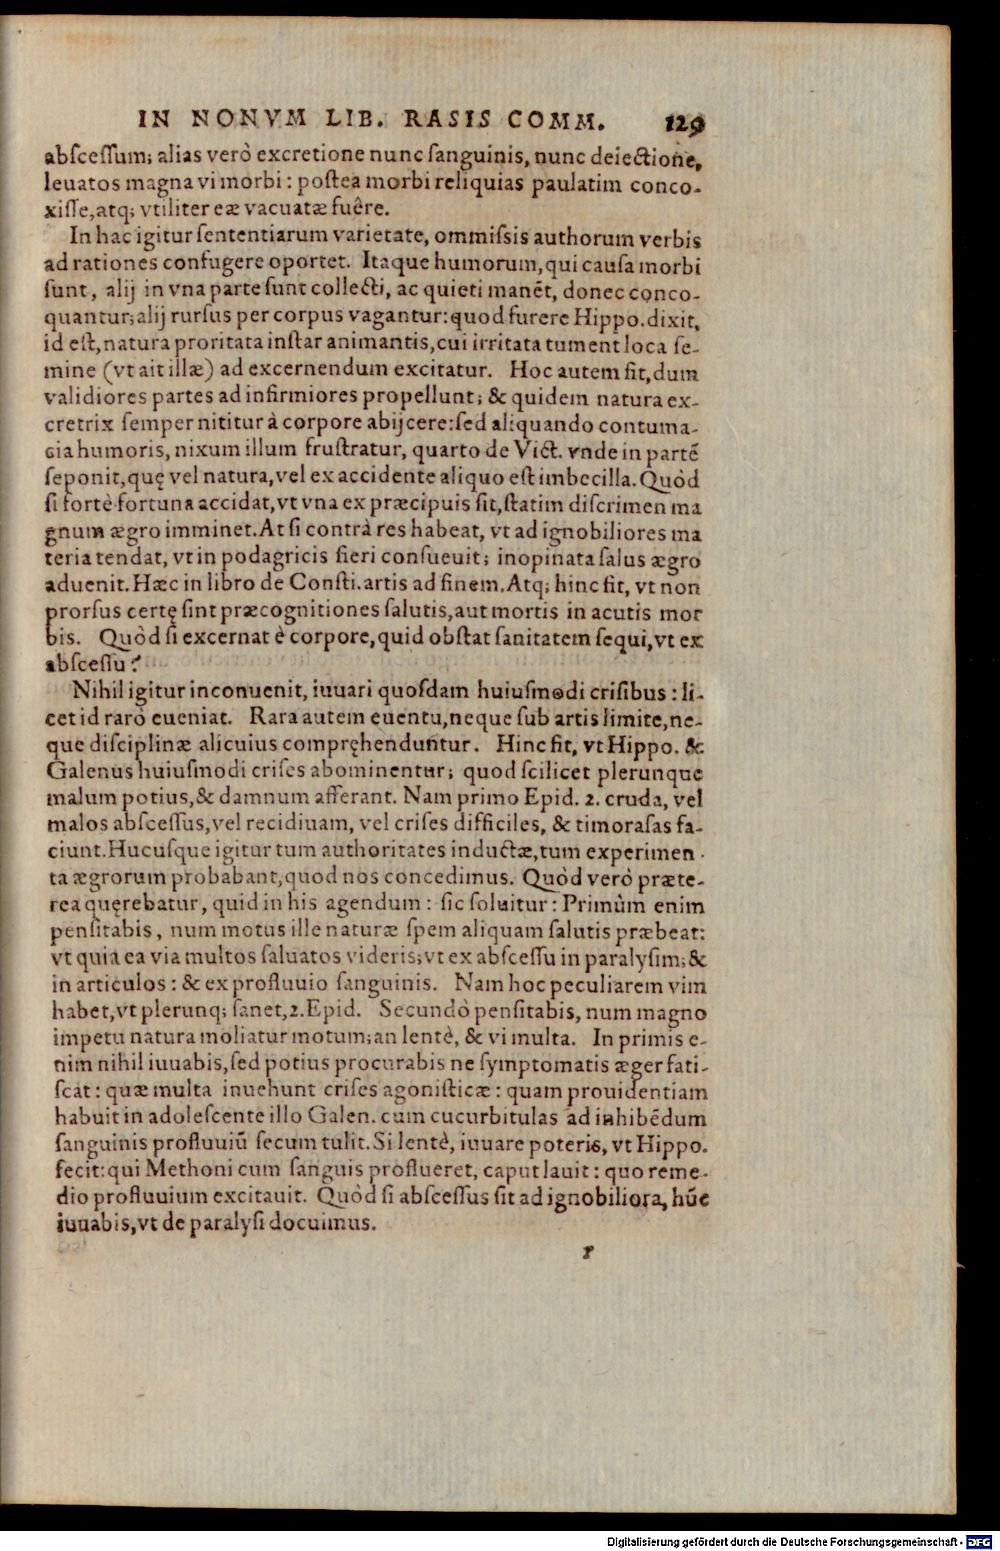 IN NONVM LIB. RASIS COMM. 129
abſceſſum; alias verò excretione nunc ſanguinis, nunc deiectione,
leuatos magna vi morbi : poſtea morbi reliquias paulatim conco-
xiſſe, atq; vtiliter eæ vacuatæ fuêre.
In hac igitur ſententiarum varietate, ommiſsis authorum verbis
ad rationes confugere oportet. Itaque humorum, qui cauſa morbi
ſunt, alij in vna parte ſunt collecti, ac quieti manẽt, donec conco-
quantur; alij rurſus per corpus vagantur: quod furere Hippo. dixit,
id eſt, natura proritata inſtar animantis, cui irritata tument loca ſe-
mine (vt ait illæ) ad excernendum excitatur. Hoc autem fit, dum
validiores partes ad infirmiores propellunt; & quidem natura ex-
cretrix ſemper nititur à corpore abijcere: ſed aliquando contuma-
cia humoris, nixum illum fruſtratur, quarto de Vict. vnde in partẽ
ſeponit, quę vel natura, vel ex accidente aliquo eſt imbecilla. Quòd
ſi fortè fortuna accidat, vt vna ex præcipuis ſit, ſtatim diſcrimen ma
gnum ægro imminet. At ſi contrà res habeat, vt ad ignobiliores ma
teria tendat, vt in podagricis fieri conſueuit; inopinata ſalus ægro
aduenit. Hæc in libro de Conſti. artis ad finem. Atq; hinc fit, vt non
prorſus certę ſint præcognitiones ſalutis, aut mortis in acutis mor
bis. Quòd ſi excernat è corpore, quid obſtat ſanitatem ſequi, vt ex
abſceſſu?
Nihil igitur inconuenit, iuuari quoſdam huiuſmodi criſibus : li-
cet id rarò eueniat. Rara autem euentu, neque ſub artis limite, ne-
que diſciplinæ alicuius compręhenduntur. Hinc fit, vt Hippo. &
Galenus huiuſmodi criſes abominentur; quod ſcilicet plerunque
malum potius, & damnum afferant. Nam primo Epid. 2. cruda, vel
malos abſceſſus, vel recidiuam, vel criſes difficiles, & timoraſas fa-
ciunt. Hucuſque igitur tum authoritates inductæ, tum experimen-
ta ægrorum probabant, quod nos concedimus. Quòd verò præte-
rea quęrebatur, quid in his agendum : ſic ſoluitur : Primùm enim
penſitabis, num motus ille naturæ ſpem aliquam ſalutis præbeat:
vt quia ea via multos ſaluatos videris; vt ex abſceſſu in paralyſim; &
in articulos : & ex profluuio ſanguinis. Nam hoc peculiarem vim
habet, vt plerunq; ſanet, 2. Epid. Secundò penſitabis, num magno
impetu natura moliatur motum; an lentè, & vi multa. In primis e-
nim nihil iuuabis, ſed potius procurabis ne ſymptomatis æger fati-
ſcat : quæ multa inuehunt criſes agoniſticæ : quam prouidentiam
habuit in adoleſcente illo Galen. cum cucurbitulas ad inhibẽdum
ſanguinis profluuiũ ſecum tulit. Si lentè, iuuare poteris, vt Hippo.
fecit: qui Methoni cum ſanguis proflueret, caput lauit : quo reme-
dio profluuium excitauit. Quòd ſi abſceſſus ſit ad ignobiliora, hũc
iuuabis, vt de paralyſi docuimus.
r
Digitalisierung gefördert durch die Deutsche Forschungsgemeinschaft - DFG